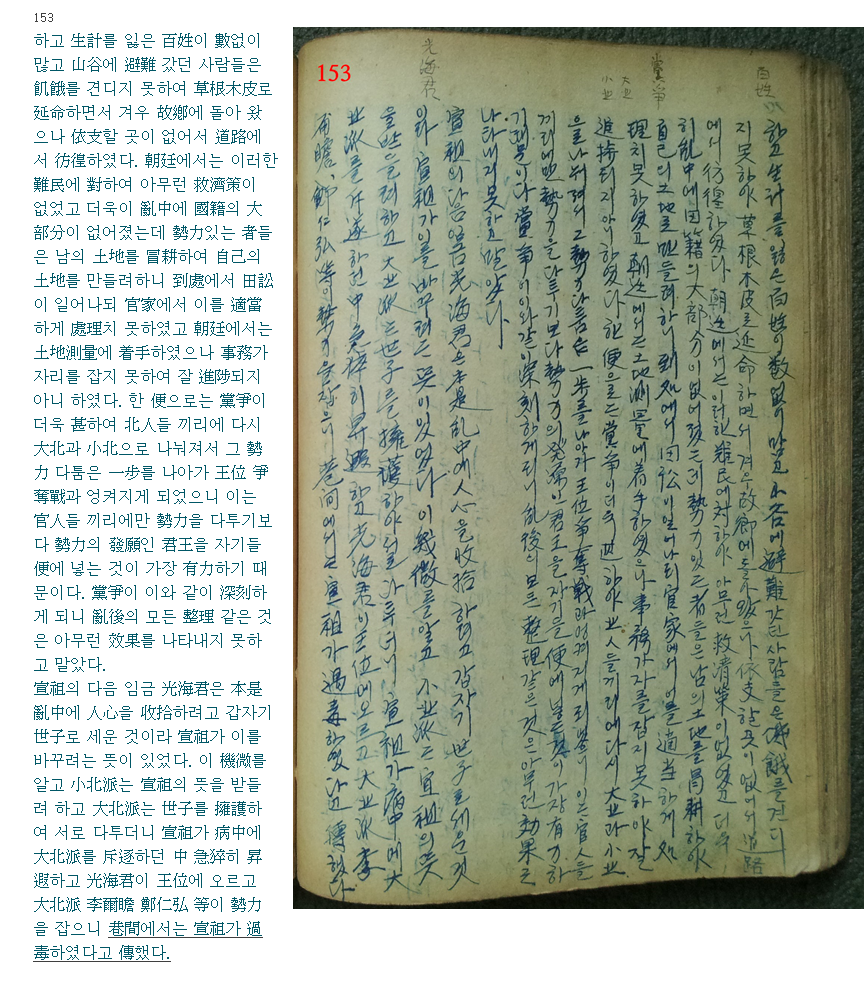 153
하고 生計를 잃은 百姓이 數없이
많고 山谷에 避難 갔던 사람들은
飢餓를 견디지 못하여 草根木皮로
延命하면서 겨우 故鄕에 돌아 왔
으나 依支할 곳이 없어서 道路에
서 彷徨하였다. 朝廷에서는 이러한
難民에 對하여 아무런 救濟策이
없었고 더욱이 亂中에 國籍의 大
部分이 없어졌는데 勢力있는 者들
은 남의 土地를 冒耕하여 自己의
土地를 만들려하니 到處에서 田訟
이 일어나되 官家에서 이를 適當
하게 處理치 못하였고 朝廷에서는
土地測量에 着手하였으나 事務가
자리를 잡지 못하여 잘 進陟되지
아니 하였다. 한 便으로는 黨爭이
더욱 甚하여 北人들 끼리에 다시
大北과 小北으로 나눠져서 그 勢
力 다툼은 一步를 나아가 王位 爭
奪戰과 엉켜지게 되었으니 이는
官人들 끼리에만 勢力을 다투기보
다 勢力의 發願인 君王을 자기들
便에 넣는 것이 가장 有力하기 때
문이다. 黨爭이 이와 같이 深刻하
게 되니 亂後의 모든 整理 같은 것
은 아무런 效果를 나타내지 못하
고 말았다.
宣祖의 다음 임금 光海君은 本是
亂中에 人心을 收拾하려고 갑자기
世子로 세운 것이라 宣祖가 이를
바꾸려는 뜻이 있었다. 이 機微를
알고 小北派는 宣祖의 뜻을 받들
려 하고 大北派는 世子를 擁護하
여 서로 다투더니 宣祖가 病中에
大北派를 斥逐하던 中 急猝히 昇
遐하고 光海君이 王位에 오르고
大北派 李爾瞻 鄭仁弘 等이 勢力
을 잡으니 巷間에서는 宣祖가 過
毒하였다고 傳했다.
153
百姓
黨爭
大北
小北
光海君
하고 生計를 잃은 百姓이 數없이 많고 山谷에 避難 갔던 사람들은 飢餓를 견디
지 못하야 草根木皮로 延命하면서 겨우 故鄕에 돌아왔으나 依支할 곳이 없어서 道路
에서 彷徨하였다. 朝廷에서는 이러한 難民에 對하야 아무런 救濟策이 없었고 더욱
히 亂中에 田籍의 大部分이 없어졌는데 勢力있는 者들은 남의 土地를 冒耕하야
自己의 土地로 만들려하니 到処에서 田訟이 일어나되 官家에서 이를 適当하게 処
理치 못하였고 朝廷에서는 土地測量에 着手하였으나 事務가 자리를 잡지 못하야 잘
進捗되지 아니하였다. 한 便으로는 黨爭이 더욱 甚하야 北人들 끼리에 다시 大北과 小北
으로 나눠져서 그 勢力 다툼은 一步를 나아가 王位 爭奪戰과 엉켜지게 되였으니 이는 官人들
끼리에만 勢力을 다투기보다 勢力의 發源인 君王을 자기들 便에 넣는 것이 가장 有力하
기 때문이다 黨爭이 이와 같이 深刻하게 되니 亂後의 모든 整理 같은 것은 아무런 効果를
나타내지 못하고 말았다
宣祖의 다음 임금 光海君은 本是 乱中에 人心을 收拾하려고 갑자기 世子로 세운 것
이라 宣祖가 이를 바꾸려는 뜻이 있었다 이 幾微를 알고 小北派는 宣祖의 뜻
을 받들려 하고 大北派는 世子를 擁護하야 서로 다투더니 宣祖가 病中에 大
北派를 斥逐하던 中 急猝히 昇遐하고 光海君이 王位에 오르고 大北派 李
爾瞻、鄭仁弘 等이 勢力을 잡으니 巷間에서는 宣祖가 過毒하였다고 傳했다.